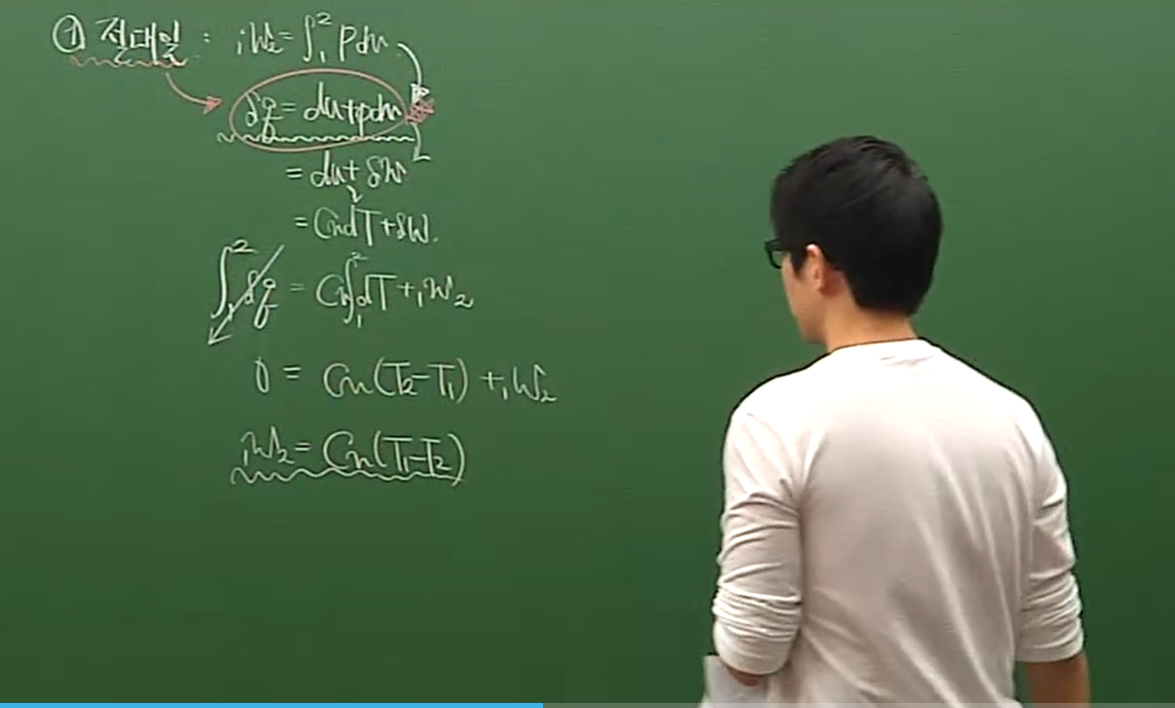 ① 절대일 : ₁w₂ = ∫₁² pdv
δq = du+pdv
= du+δw
= CvdT+δw.
∫₁² δq = Cv∫₁² dT+₁w₂
0 = Cv(T₂-T₁) +₁w₂
₁w₂ = Cv(T₁-T₂)